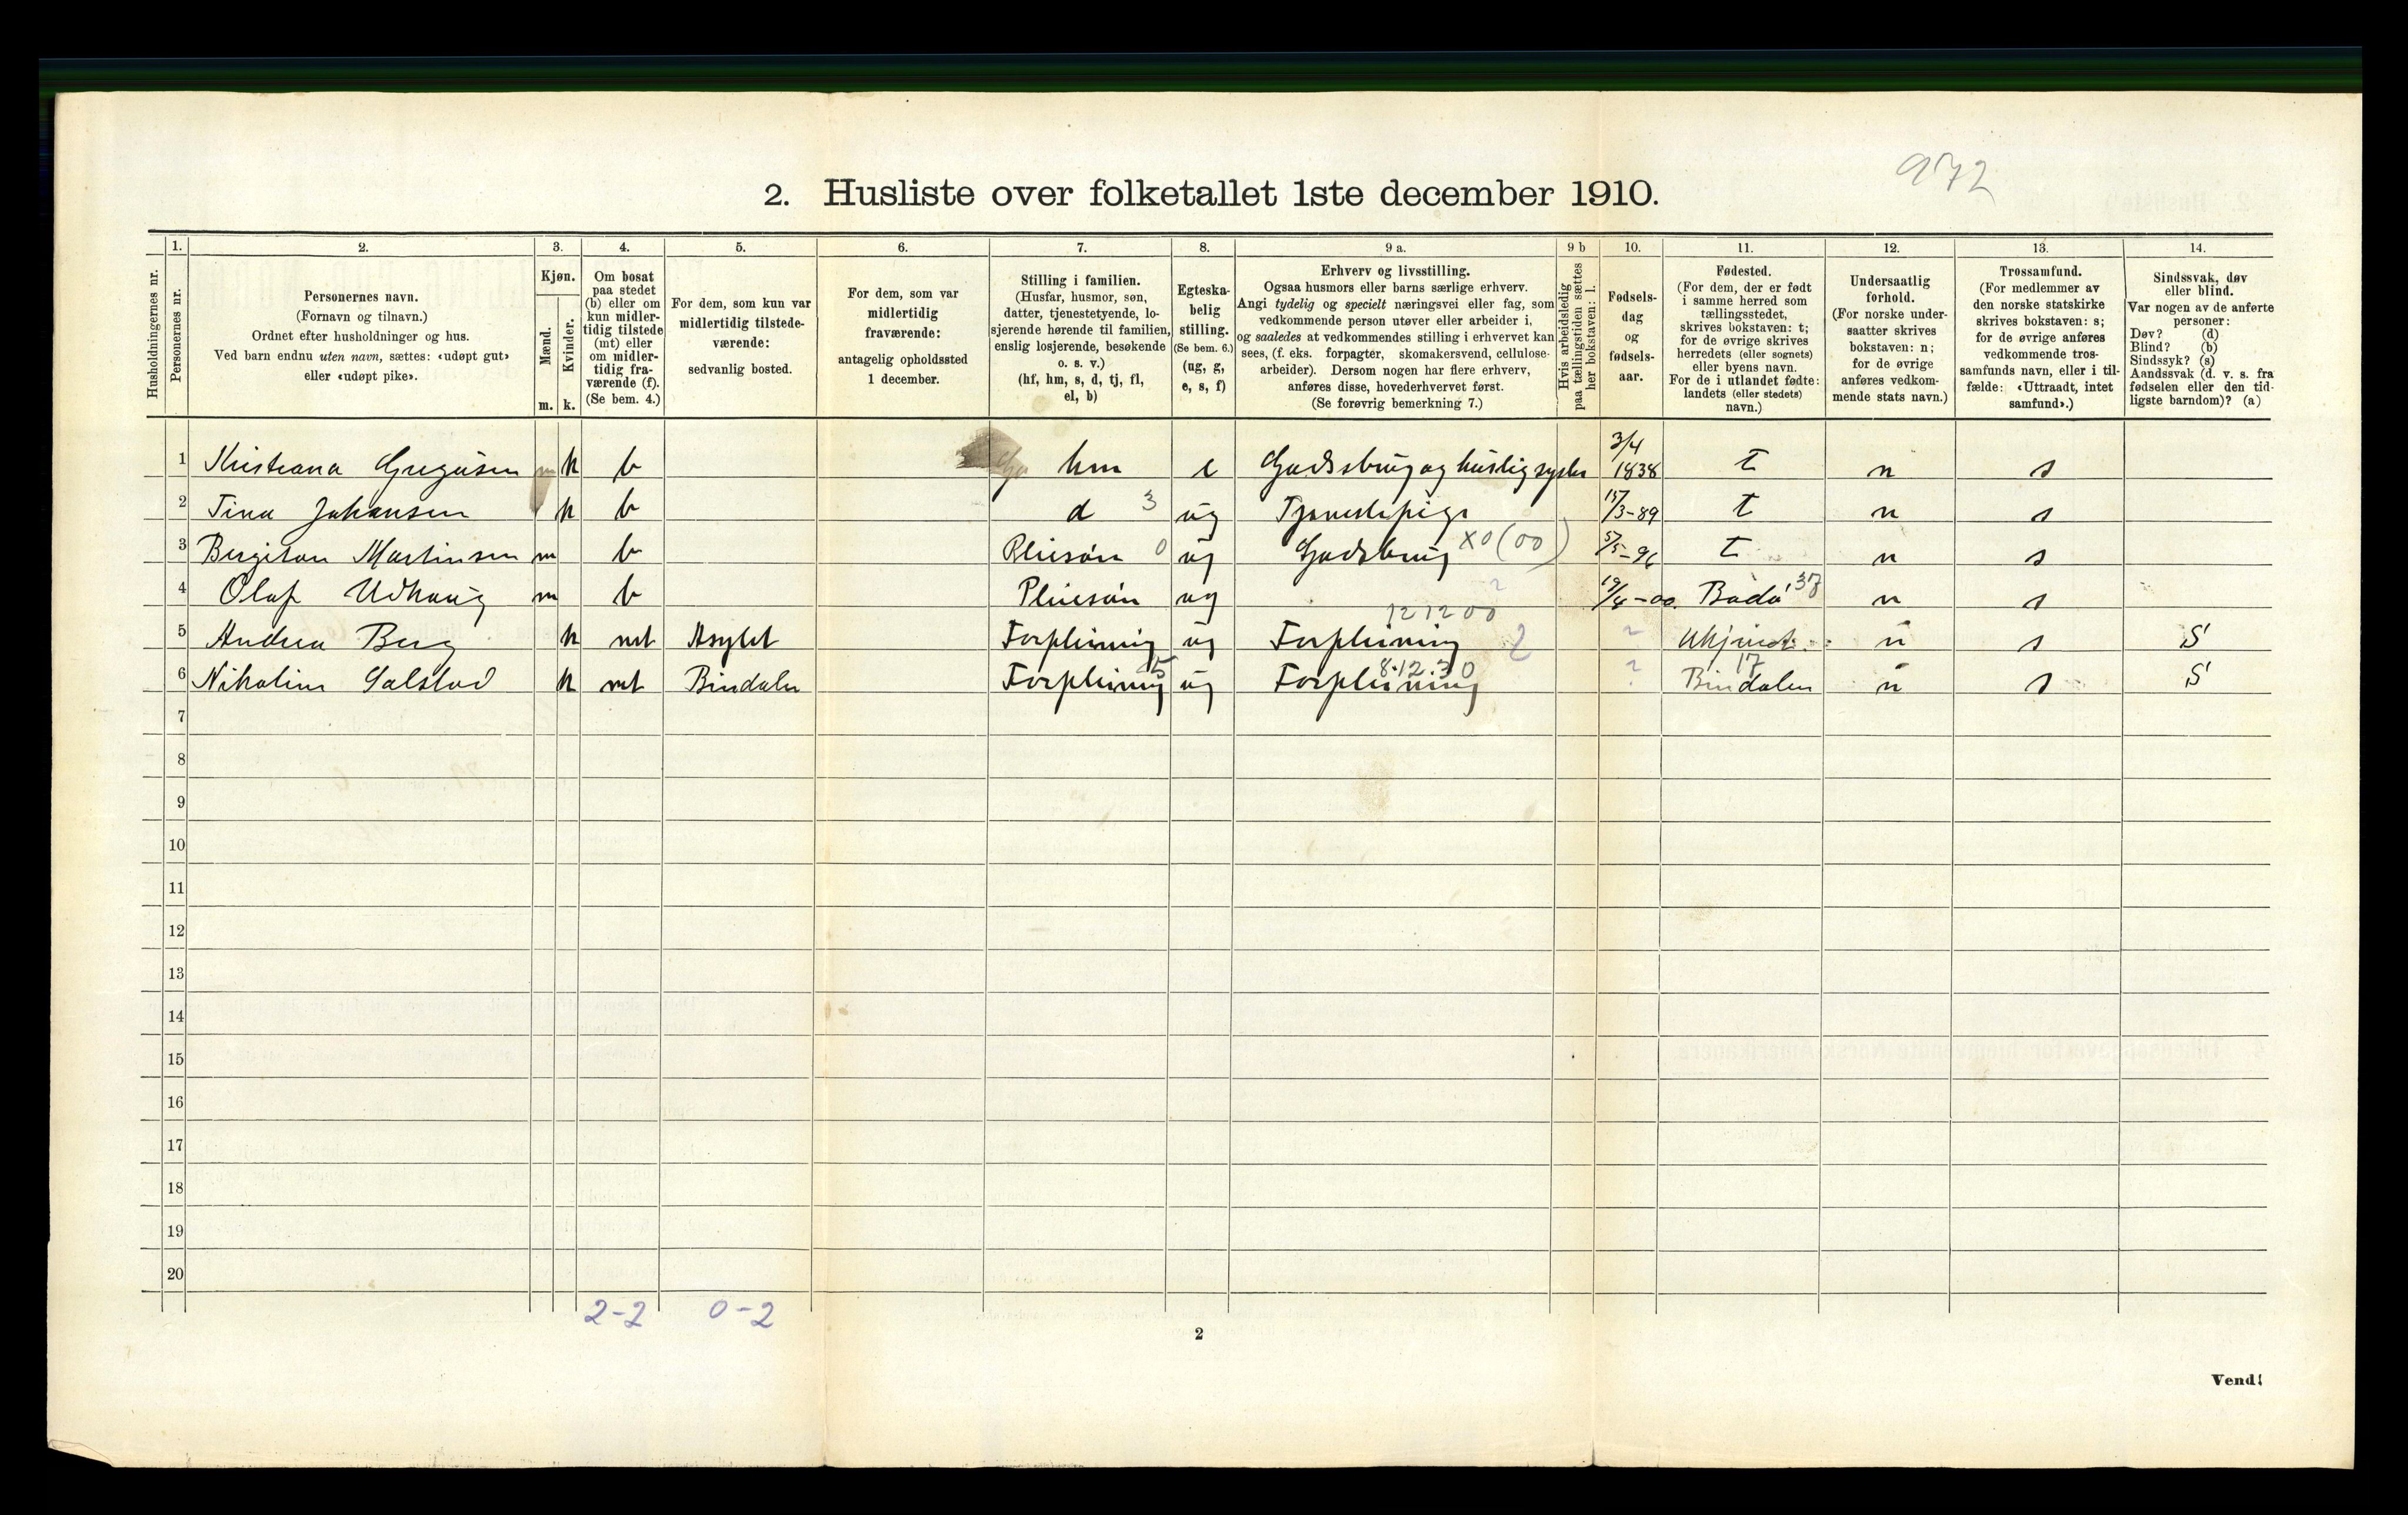 972
2. Husliste over folketallet 1ste december 1910.
Husholdningernes nr.
1.
Personernes nr.
2.
Personernes navn.
(Fornavn og tilnavn.)
Ordnet efter husholdninger og hus.
Ved barn endnu uten navn, sættes: «udøpt gut»
eller «udøpt pike».
3.
Kjøn.
Mænd.
Kvinder.
m. k.
4.
Om bosat
paa stedet
(b) eller om
kun midler-
tidig tilstede
(mt) eller
om midler-
tidig fra-
værende (f).
(Se bem. 4.)
5.
For dem, som kun var
midlertidig tilstede-
værende:
sedvanlig bosted.
6.
For dem, som var
midlertidig
fraværende:
antagelig opholdssted
1 december.
7.
Stilling i familien.
(Husfar, husmor, søn,
datter, tjenestetyende, lo-
sjerende hørende til familien,
enslig losjerende, besøkende
o. s. v.)
(hf, hm, s, d, tj, fl,
el, b)
8.
Egteska-
belig
stilling.
(Se bem. 6.)
(ug, g,
e, s, f)
9 a.
Erhverv og livsstilling.
Ogsaa husmors eller barns særlige erhverv.
Angi tydelig og specielt næringsvei eller fag, som
vedkommende person utøver eller arbeider i,
og saaledes at vedkommendes stilling i erhvervet kan
sees, (f. eks. forpagter, skomakersvend, cellulose-
arbeider). Dersom nogen har flere erhverv,
anføres disse, hovederhvervet først.
(Se forøvrig bemerkning 7.)
9 b
Hvis arbeidsledig
paa tællingstiden sættes
her bokstaven: l.
10.
Fødsels-
dag
og
fødsels-
aar.
11.
Fødested.
(For dem, der er født
i samme herred som
tællingsstedet,
skrives bokstaven: t;
for de øvrige skrives
herredets (eller sognets)
eller byens navn.
For de i utlandet fødte:
landets (eller stedets)
navn.)
12.
Undersaatlig
forhold.
(For norske under-
saatter skrives
bokstaven: n;
for de øvrige
anføres vedkom-
mende stats navn.)
13.
Trossamfund.
(For medlemmer av
den norske statskirke
skrives bokstaven: s;
for de øvrige anføres
vedkommende tros-
samfunds navn, eller i til-
fælde: «Uttraadt, intet
samfund».)
14.
Sindssvak, døv
eller blind.
Var nogen av de anførte
personer:
Døv? (d)
Blind? (b)
Sindssyk? (s)
Aandssvak (d. v. s. fra
fødselen eller den tid-
ligste barndom)? (a)
1 Kristiana Gregusen k b hm e Gadsbrug og huslig sysler 3/4 1838 t n s
2 Tina Johansen k b d 3 ug Tjenestepige 15/3-89 t n s
3 Bergiton Martinsen m b Pleiesøn 0 ug Gadsbrug X0 (00) 5/5-96 t n s
4 Olaf Udhaug m b Pleiesøn ug 19/4-00. Bodø 37 n s
12 12 00
5 Andrea Berg k mt Asylet Forpleining ug Forpleining 2 ? Ukjent n s S
8.12.30 17
6 Nikoline Salstad k mt Bindalen Forpleining 5 ug Forpleining ? Bindalen n s S
7
8
9
10
11
12
13
14
15
16
17
18
19
20
2-2 0-2
2
Vend!